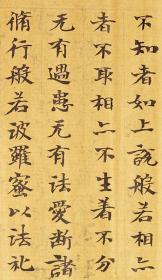 不知者如上說般若
者不取相亦不生着不分
无有過患无有法愛斷諸
脩行般若波羅蜜以法礼